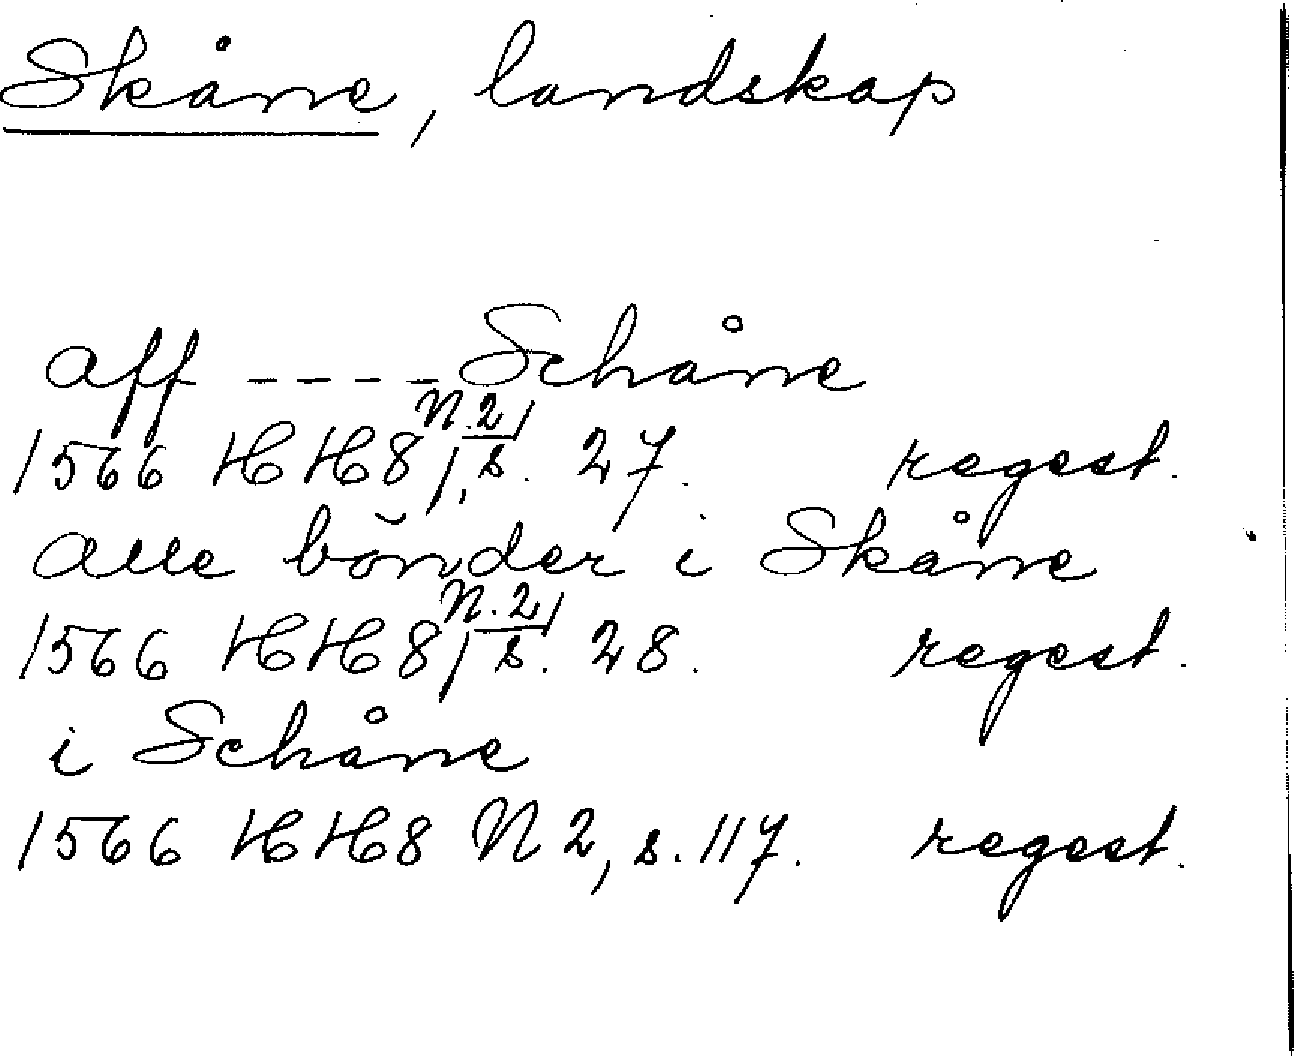 Skåne, landskap
aff ---- Schåne
1566 HH8 N.2, s. 27. regest.
alle bönder i Skåne
1566 HH8 N.2, s. 28. regest.
i Schåne
1566 HH8 N2, s. 117. regest.